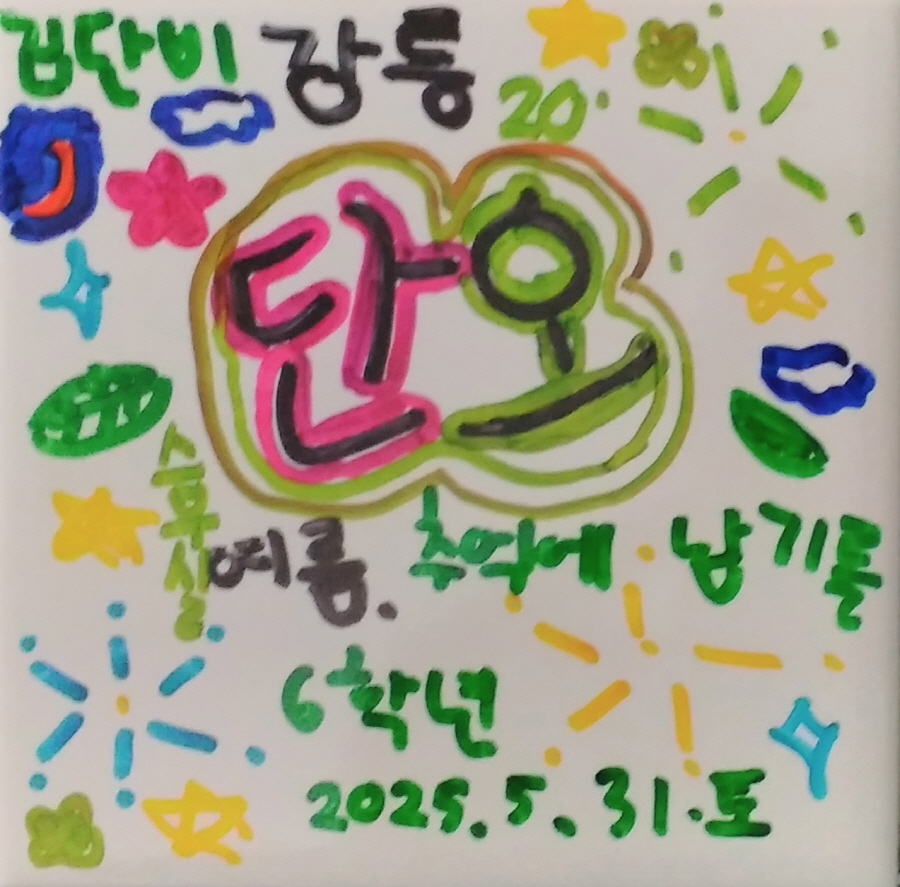 김단비 강릉 20'
단오
여름. 추억에 남기를
6학년
2025.5.31.토